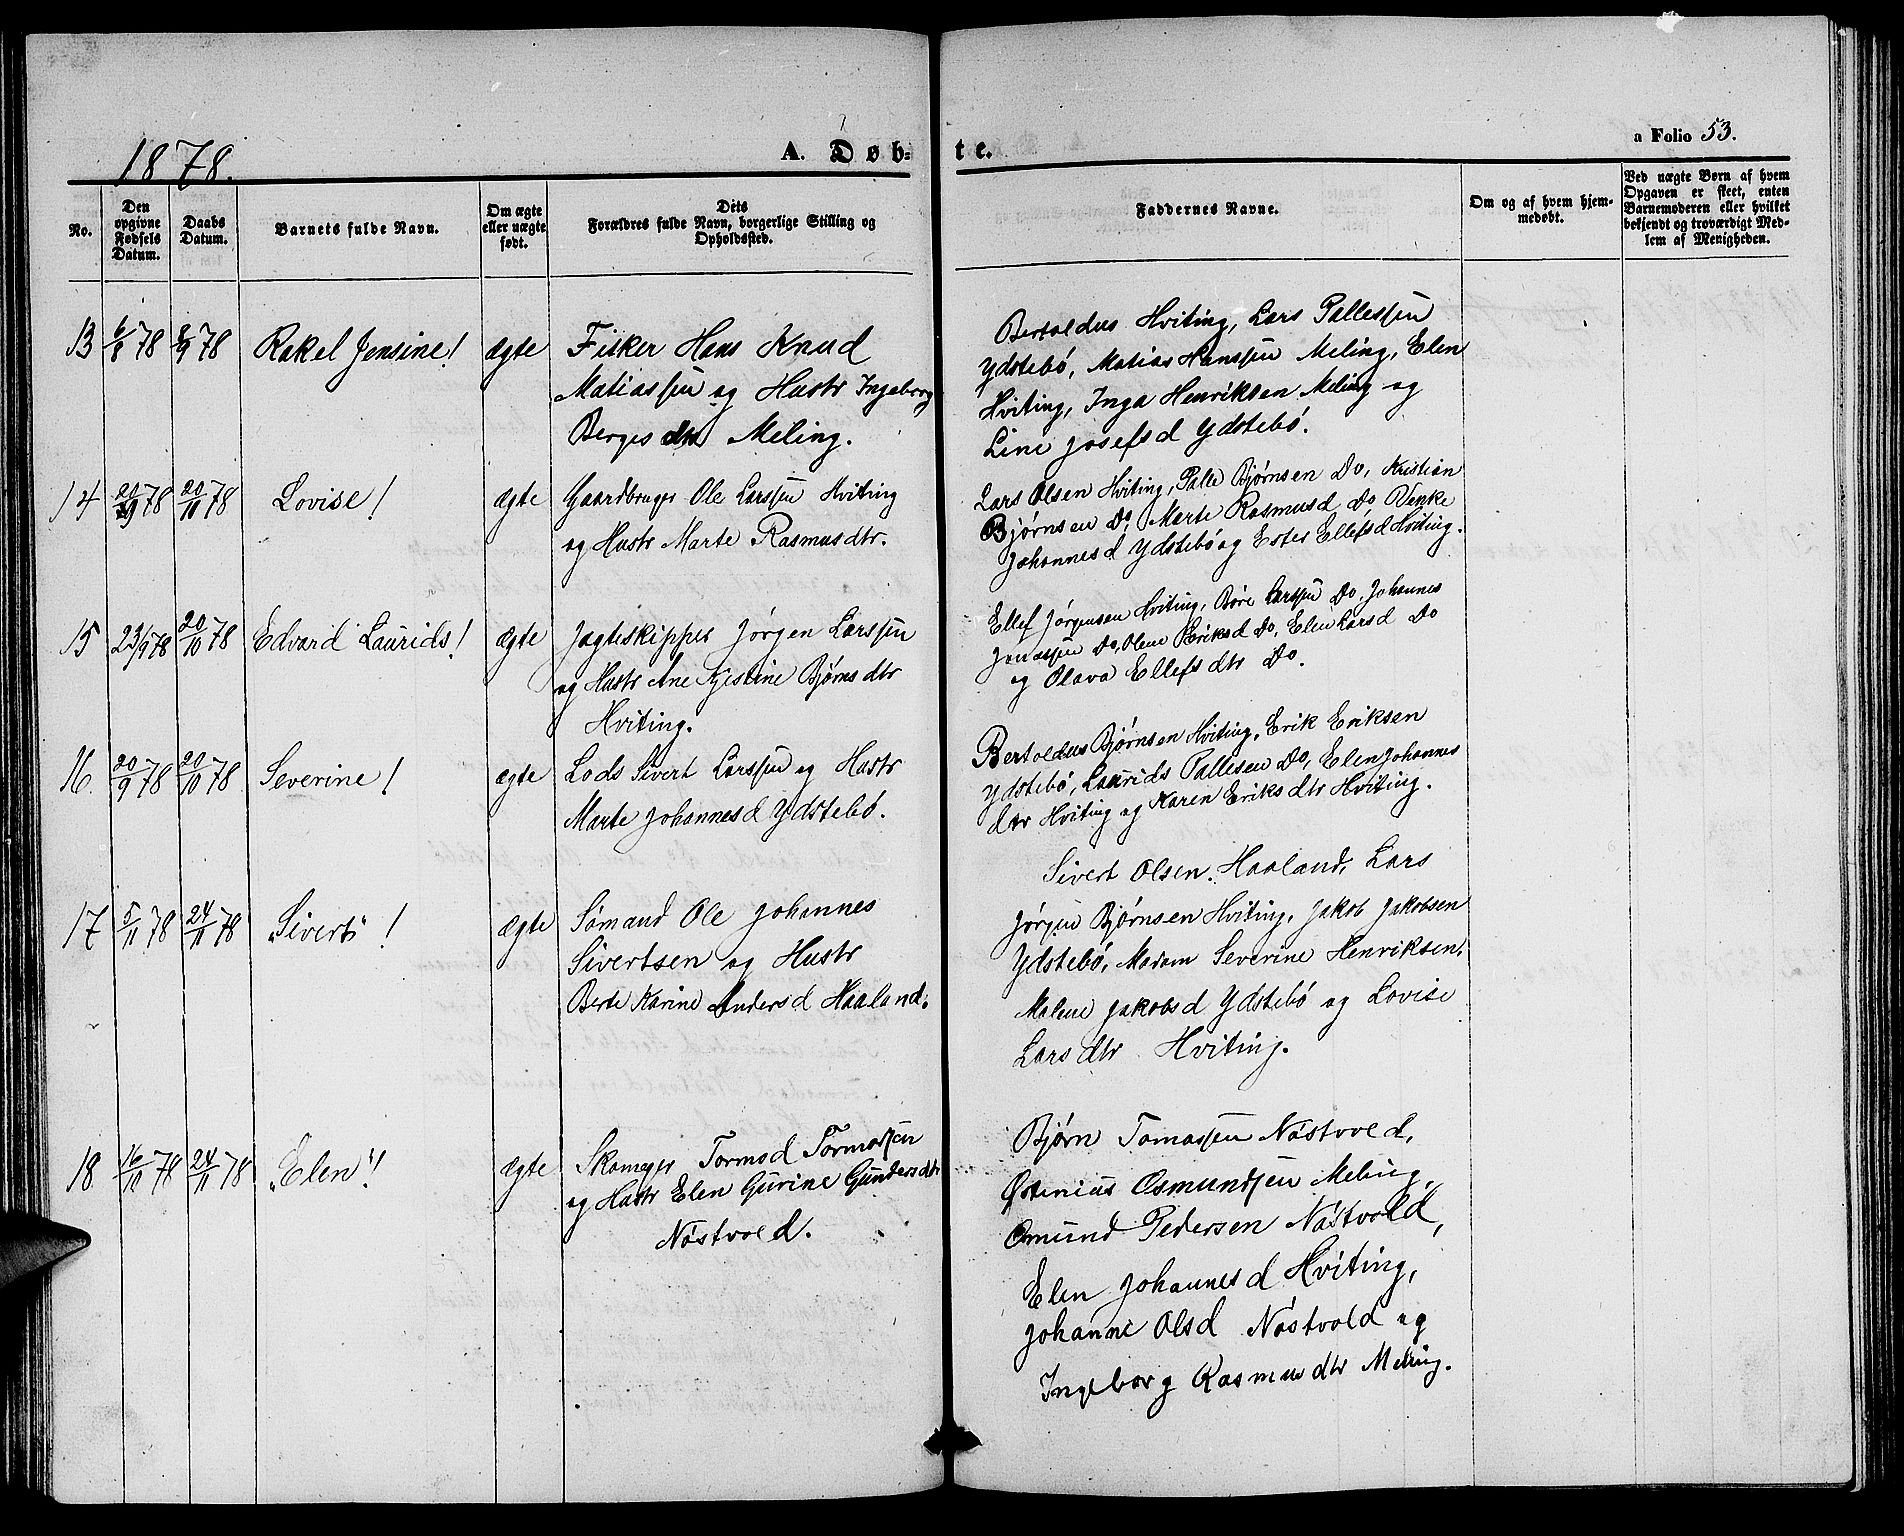 1878.
A. Døb-
te.
a Folio 53.
No.
Den
opgivne
Fødsels
Datum.
Daabs
Datum.
Barnets fulde Navn.
Om ægte
eller uægte
født.
Dets
Forældres fulde Navn, borgerlige Stilling og
Opholdssted.
Faddernes Navne.
Om og af hvem hjem-
medøbt.
Ved uægte Børn af hvem
Opgaven er skeet, enten
Barnemoderen eller hvilket
bekjendt og troværdigt Med-
lem af Menigheden.
13 6/8 78 8/9 78 Rakel Jensine! ægte
Fisker Hans Knud
Matiassen og Hustr Ingeborg
Berges dtr Meling.
Bertoldus Hviting, Lars Pallessen
Ydstebö, Matias Hanssen Meling, Elen
Hviting, Inga Henriksen Meling og
Line Josefsd Ydstebö.
14 20/9 78 20/10 78 Lovise! ægte
Gaardbruger Ole Larssen Hviting
og Hustr Marte Rasmusdtr.
Lars Olsen Hviting, Palle Bjørnsen Do, Kristian
Bjørnsen Do, Marte Rasmusd Do Venke
Johannesd Ydstebö og Ester Ellefsd Hviting.
15 23/9 78 20/10 78 Edvard Laurids! ægte
Jagtskipper Jörgen Larssen
og Hustr Ane Kjestine Bjørnsdtr
Hviting.
Ellef Jörgensen Hviting, Böre Larssen Do, Johannes
Jonassen Do, Olene Eriksd Do, Elen Larsd Do
og Olava Ellefsdtr Do.
16. 20/9 78 20/10 78 Severine! ægte
Lods Sivert Larssen og Hustr
Marte Johannesd Ydstebö.
Bertoldus Bjørnsen Hviting, Erik Eriksen
Ydstebö, Laurids Pallesen Do, Elen Johannes
dtr Hviting og Karen Eriksdtr Hviting.
17 5/11 78 24/11 78 "Sivert"! ægte
Sömand Ole Johannes
Sivertsen og Hustr
Berte Karine Andersd Haaland.
Sivert Olsen Haaland, Lars
Jörgen Bjørnsen Hviting, Jakob Jakobsen
Ydstebö, Madam Severine Henriksen,
Malene Jakobsd Ydstebö og Lovise
Larsdtr Hviting.
18 16/11 78 24/11 78 "Elen"! ægte
Skomager Tormod Tormodsen
og Hustr Elen Gurine Gundersdtr
Nöstvold.
Bjørn Tomassen Nöstvold,
Østenius Osmundsen Meling,
Omund Pedersen Nöstvold,
Elen Johannesd Hviting,
Johanne Olsd Nöstvold og
Ingeborg Rasmusdtr Meling.